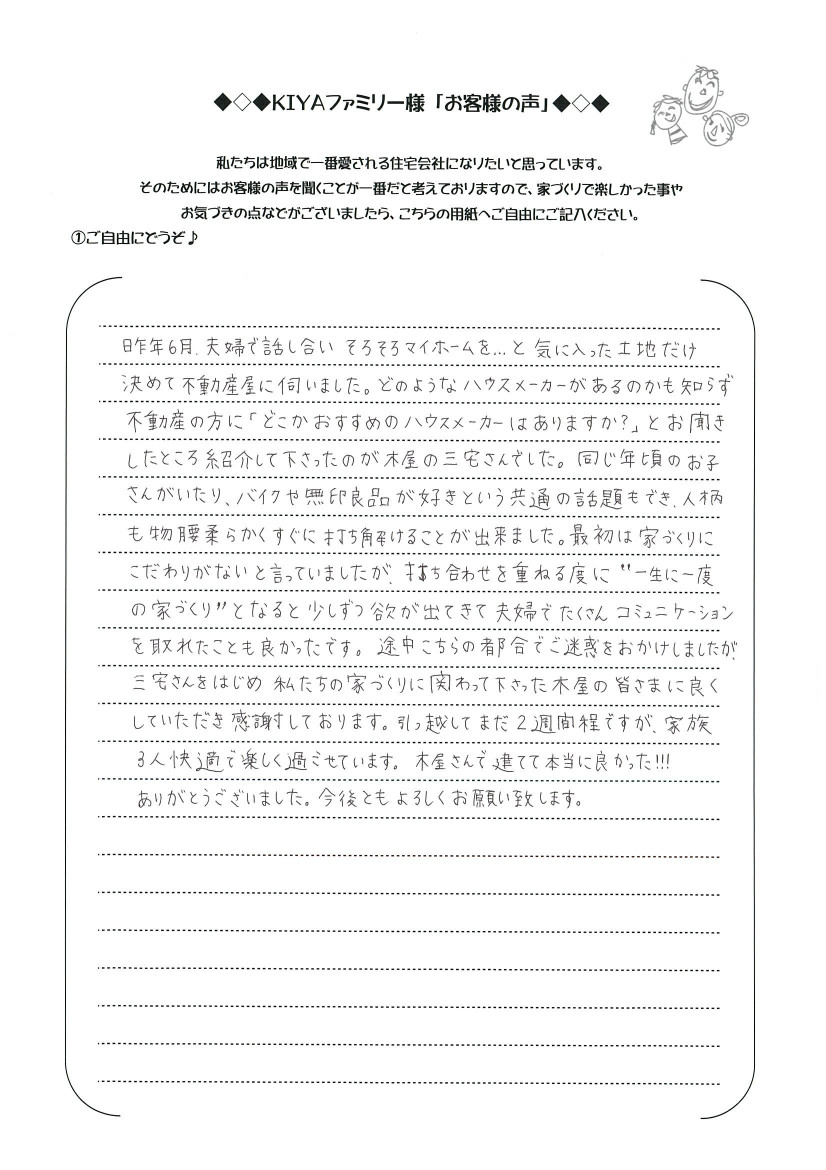 ◆◇◆KIYAファミリー様「お客様の声」◆◇◆
私たちは地域で一番愛される住宅会社になりたいと思っています。
そのためにはお客様の声を聞くことが一番だと考えておりますので、家づくりで楽しかった事や
お気づきの点などがございましたら、こちらの用紙へご自由にご記入ください。
①ご自由にどうぞ♪
昨年6月、夫婦で話し合い そろそろマイホームを…と 気に入った土地だけ
決めて不動産屋に伺いました。どのようなハウスメーカーがあるのかも知らず
不動産の方に「どこかおすすめのハウスメーカーはありますか?」とお聞き
したところ紹介して下さったのが木屋の三宅さんでした。同じ年頃のお子
さんがいたり、バイクや無印良品が好きという共通の話題もでき、人柄
も物腰柔らかくすぐに打ち解けることが出来ました。最初は家づくりに
こだわりがないと言っていましたが、打ち合わせを重ねる度に“一生に一度
の家づくり”となると少しずつ欲が出てきて夫婦でたくさんコミュニケーション
を取れたことも良かったです。途中こちらの都合でご迷惑をおかけしましたが、
三宅さんをはじめ 私たちの家づくりに関わって下さった木屋の皆さまに良く
していただき感謝しております。引っ越してまだ2週間程ですが、家族
3人快適で楽しく過ごせています。木屋さんで建てて本当に良かった!!!
ありがとうございました。今後ともよろしくお願い致します。